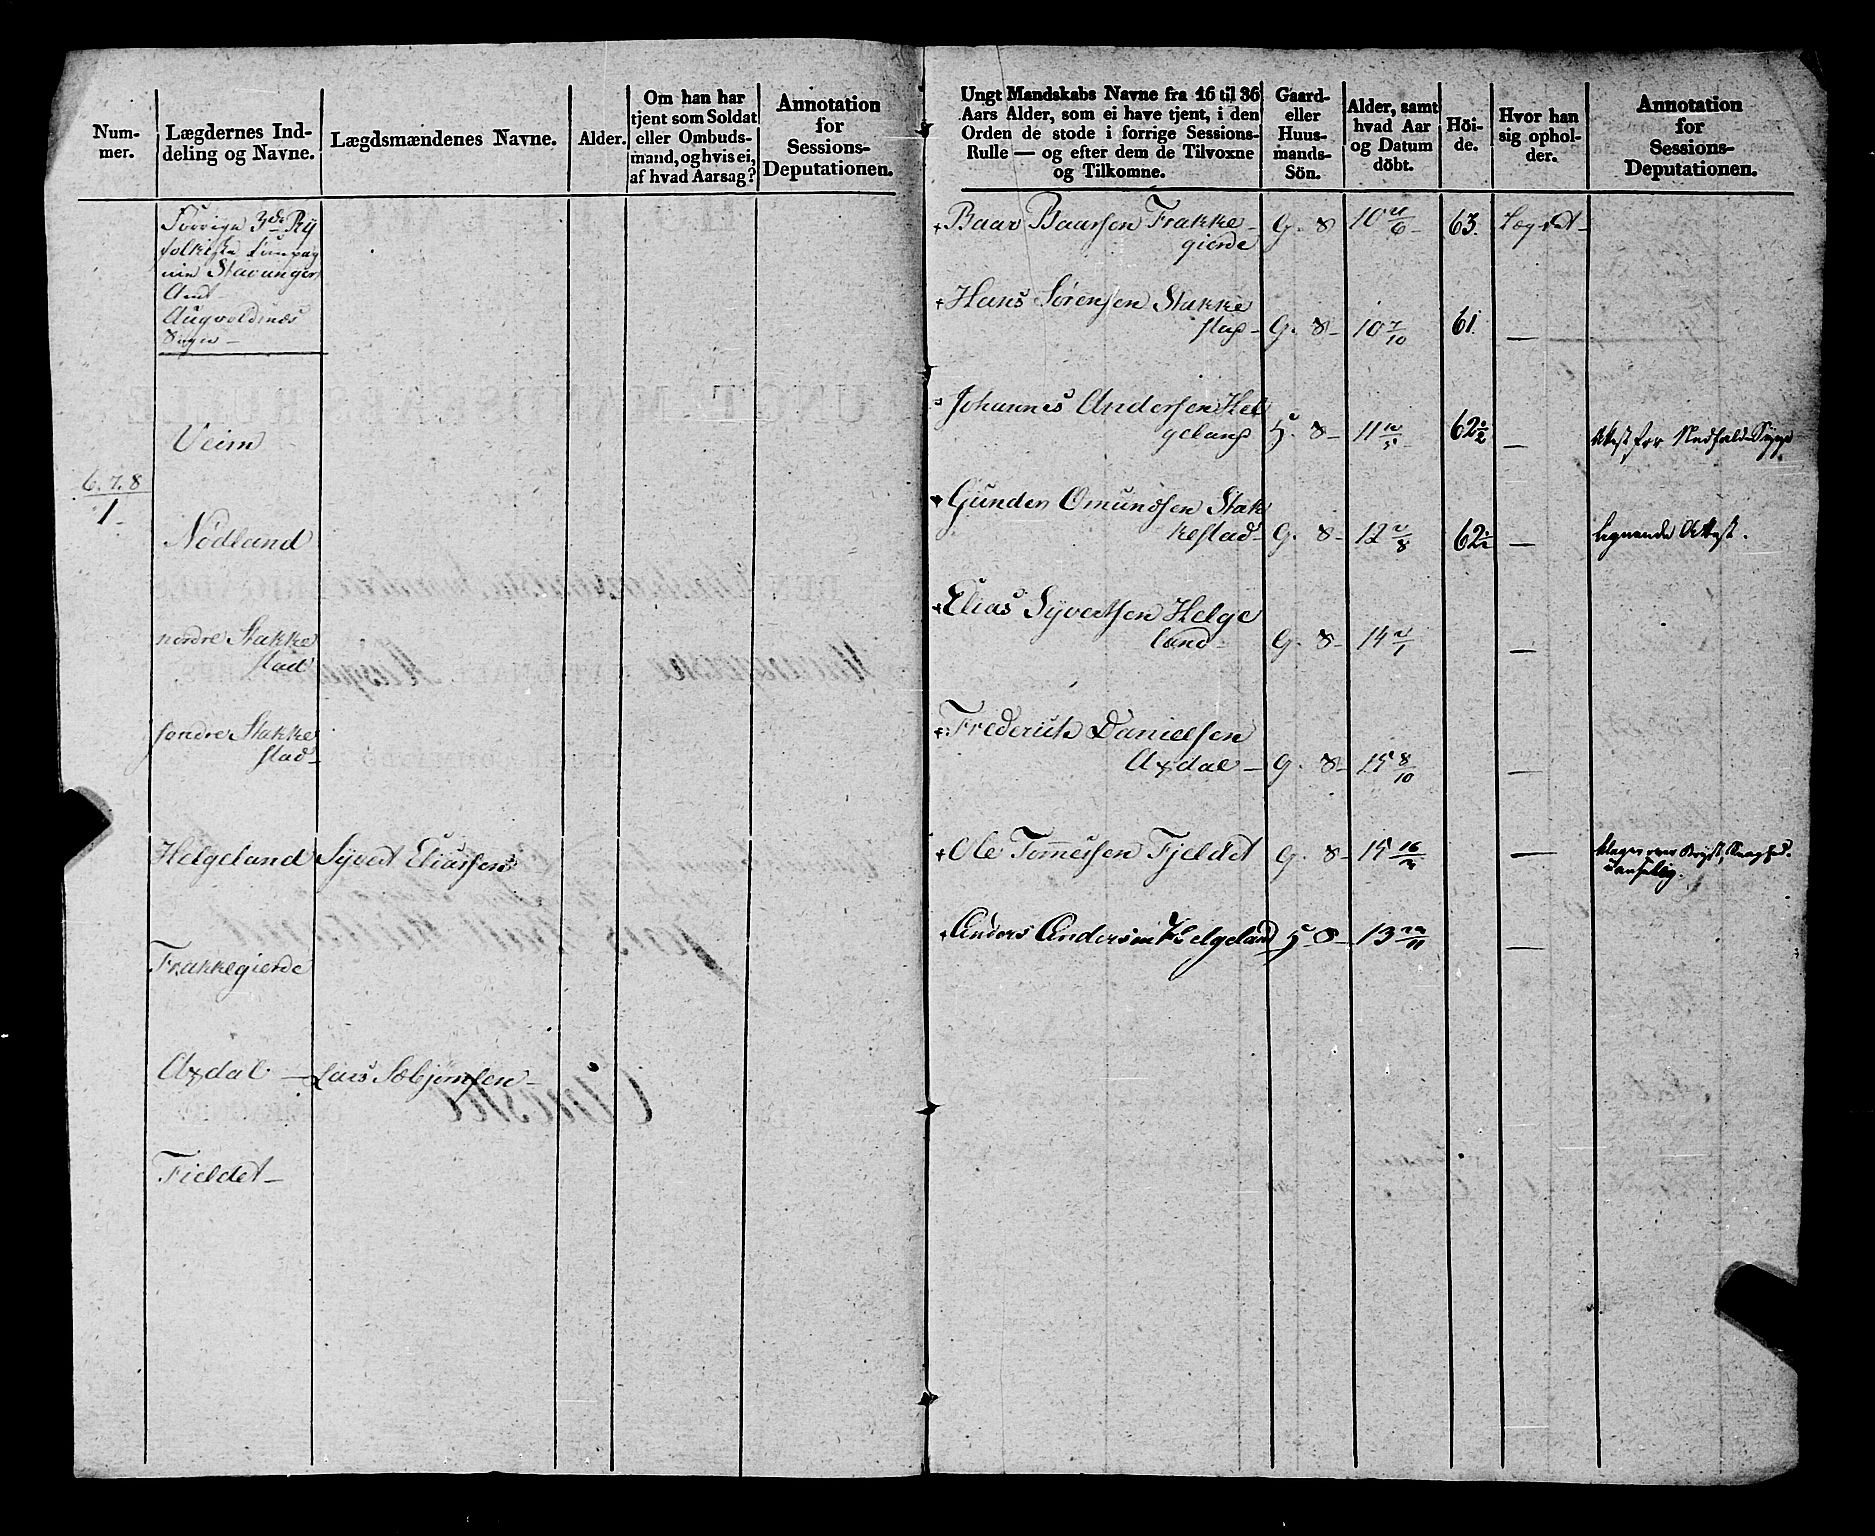 Num-
mer.
Lægdernes Ind-
deling og Navne.
Lægdsmændenes Navne.
Alder.
Om han har
tjent som Soldat
eller Ombuds-
mand, og hvis ei,
af hvad Aarsag?
Annotation
for
Sessions-
Deputationen.
Forrige 3de Ry
folkeske Compag
nie Stavanger
Amt
Augvoldnæs
Sogn
Veim
6.7.8
1
Nødland
nordre Stakke
stad
søndre Stakke
stad
Helgeland Syvert Eliassen
Frakkegierde
Axdal Lars
Fieldet
Ungt Mandskabs Navne fra 16 til 36
Aars Alder, som ei have tjent, i den
Orden de stode i forrige Sessions-
Rulle — og efter dem de Tilvoxne
og Tilkomne.
Gaard-
eller
Huus-
mands-
Sön.
Alder, samt
hvad Aar
og Datum
döbt.
Höi-
de.
Hvor han
sig ophol-
der.
Annotation
for
Sessions-
Deputationen.
Baar Baarsen Frakke
gierde G. 8 10 63. Lægdet
Hans Sørensen Stakke
stad G. 8 10 7/10 61. —
Johannes Andersen Hel
geland 8 11 62½ — Attest for
Gunder Omundsen Stak
kestad G. 8 12 62½ — lignende Attest.
Elias Syvertsen Helge
land G. 8 14 —
Frederich Danielsen
Axdal G. 8 15 8/10 —
Ole Tommessen Fjeldet G. 8 15 —
Klager over Bryst
Anders Andersen Helgeland 8 13 —